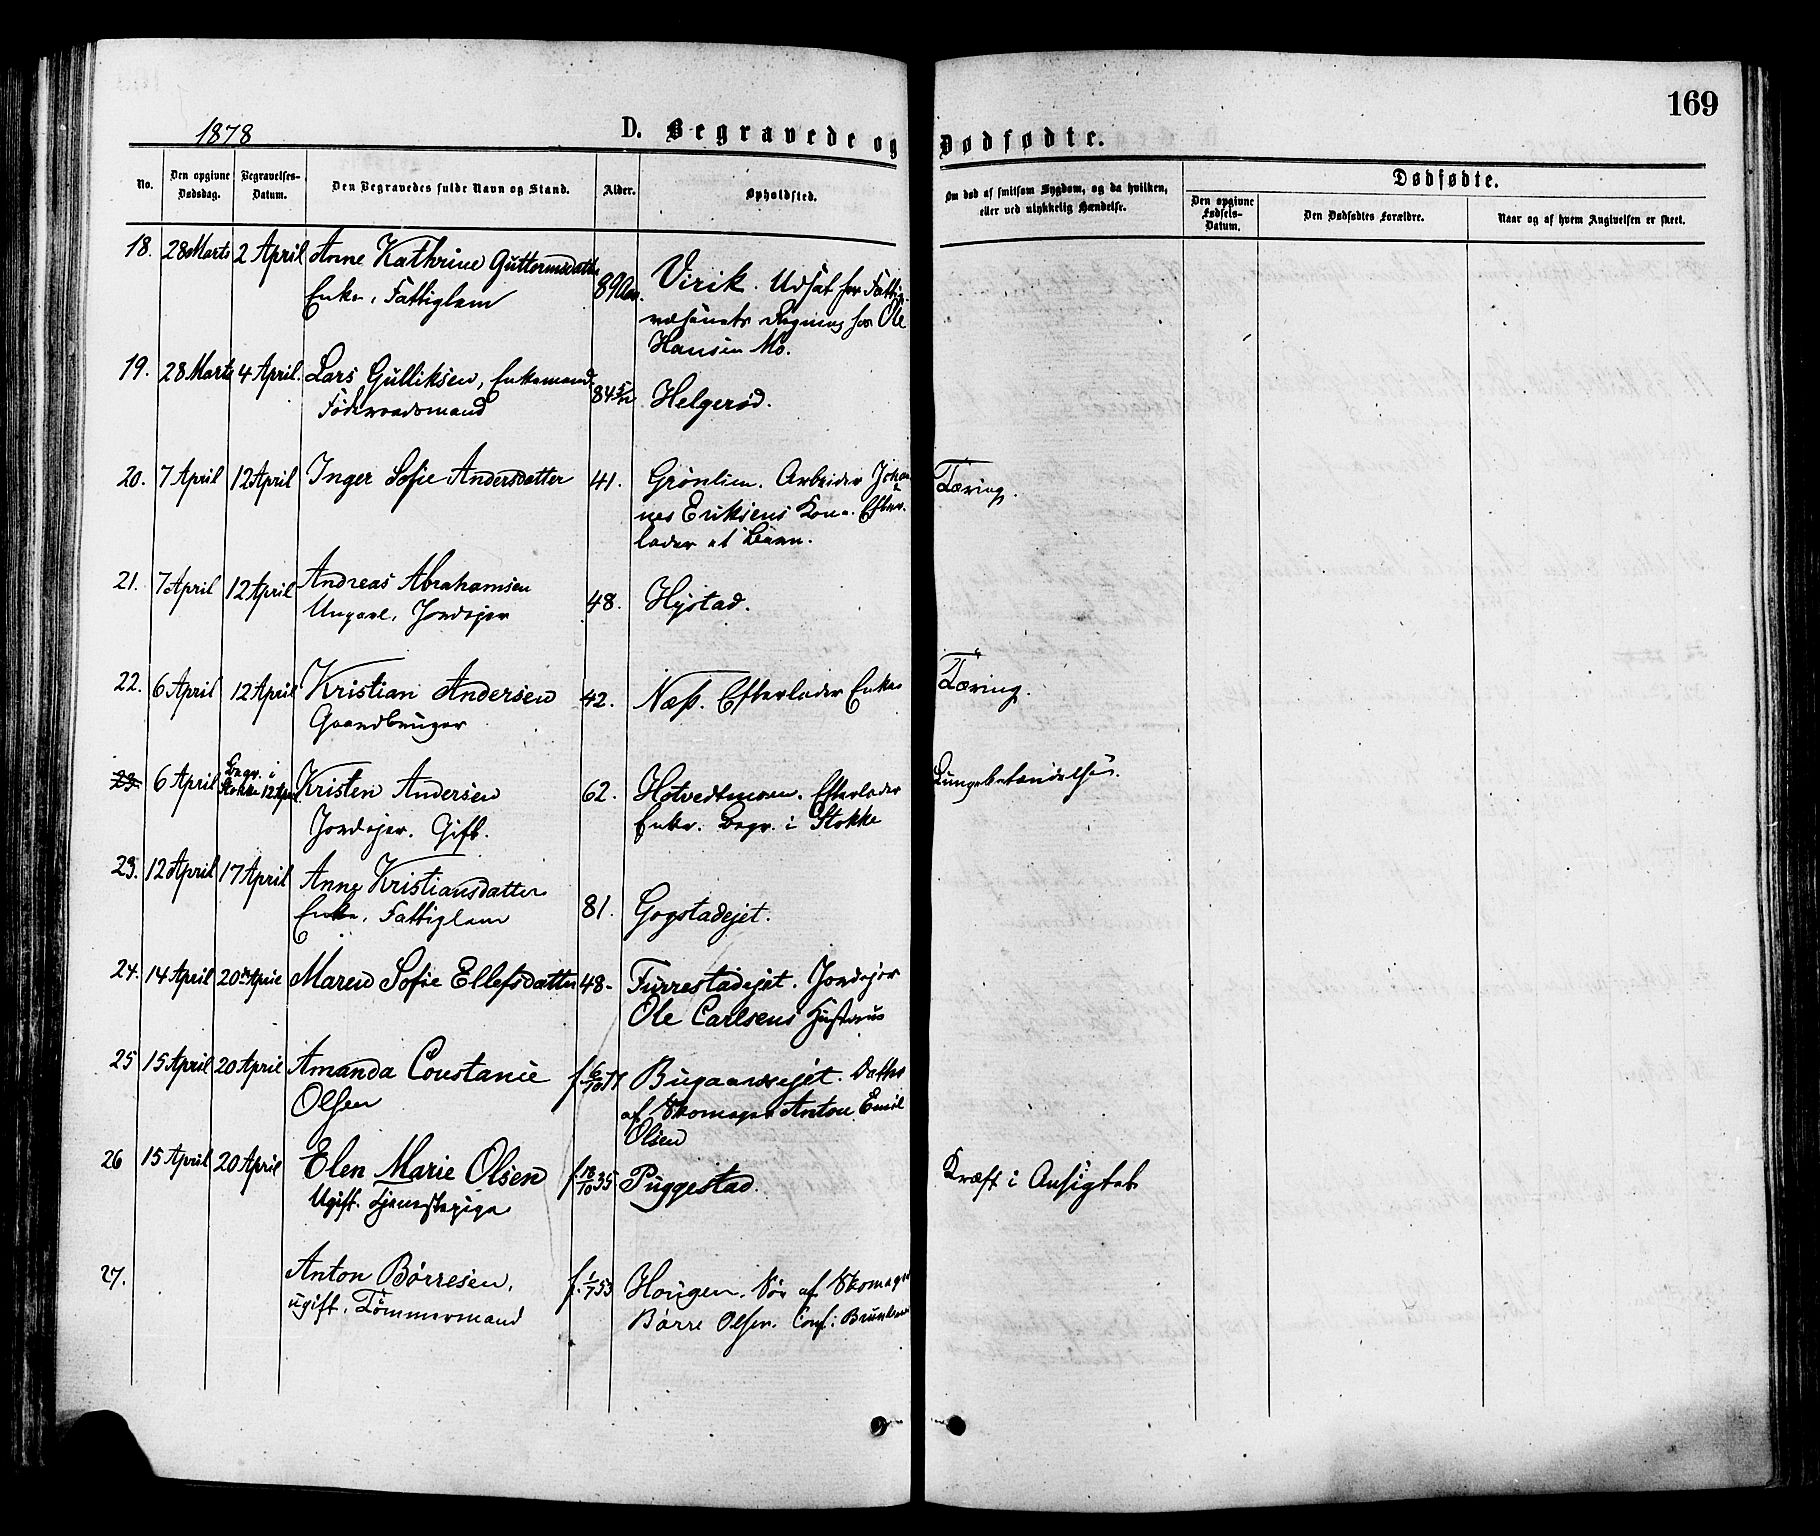 169
1878 D. Begravede og Dødfødte.
No. Den opgivne Dødsdag. Begravelses-Datum. Den Begravedes fulde Navn og Stand. Alder. Opholdsted. Om død af smitsom Sygdom, og da hvilken, eller ved ulykkelig Hændelse. Dødfødte.
Den opgivne Fødsels-Datum. Den Dødfødtes Forældre. Naar og af hvem Angivelsen er skeet.
18. 28 Marts 2 April Anne Kathrine Guttormsdatter 89 Aar. Virik. Udsat for Fattig-
Enke, Fattiglem væsenets Regning hos Ole
Hansen Mo.
19. 28 Marts 4 April. Lars Gulliksen, Enkemand 84 5/12 Helgerød.
Føderaadsmand
20. 7 April 12 April Inger Sofie Andersdatter 41. Grønlien. Arbeider Johan- Tæring.
nes Eriksens Kone. Efter-
lader et Barn.
21. 7 April 12 April Andreas Abrahamsen 48. Hystad.
Ungkarl, Jordejer
22. 6 April 12 April Kristian Andersen 42. Næss. Efterlader Enke Tæring.
Gaardbruger
23. 6 April Begr. i Stokke 12 April Kristen Andersen 62. Hotvedtmoen. Efterlader Lungebetændelse.
Jordejer. Gift. Enke. Begr. i Stokke
23. 12 April 17 April Anne Kristiansdatter 81. Gogstadejet.
Enke, Fattiglem
24. 14 April 20de April Maren Sofie Ellefsdatter 48- Furrestadejet. Jordejer
Ole Carlsens Hustru
25 15 April 20 April Amanda Constanse f. 6/10 77 Bugaardsejet. Datter
Olsen af Skomager Anton Emil
Olsen
26 15 April 20 April Elen Marie Olsen f. 18/10 35 Puggestad. Kræft i Ansigtet
Ugift. Tjenestepige
27. Anton Børresen, f. 1/7 53 Hougen. Søn af Skomager
ugift. Tømmermand Børre Olsen. Conf: